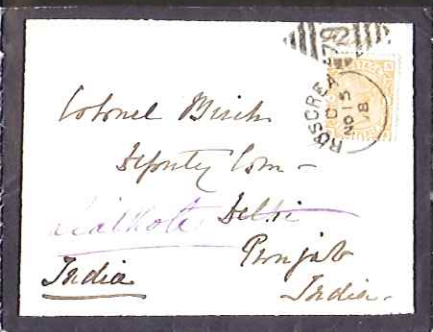 ROSCREA
C
NO 15
Colonel Birch
Deputy Com -
Sialkote Delhi
Punjab
India India -